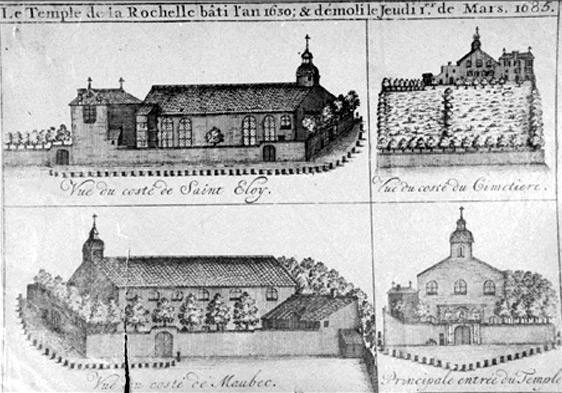 Le Temple de la Rochelle bâti l'an 1630; & démoli le Jeudi 1.er de Mars. 1685.
Vue du costé de Saint Eloy.
Vue du costé du Cimetiere.
Vue du costé de Maubec.
Principale entrée du Temple